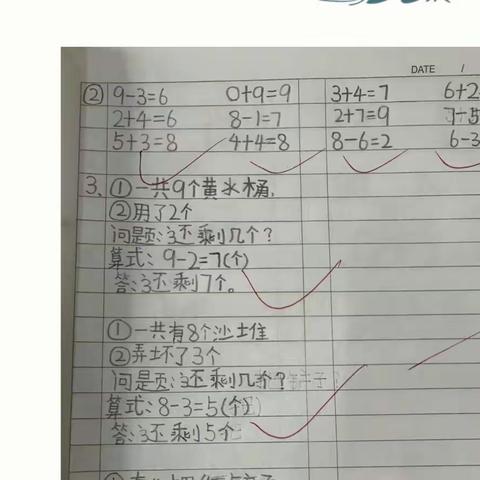 DATE /
② 9-3=6 0+9=9 3+4=7 6+2
2+4=6 8-1=7 2+7=9
5+3=8 4+4=8 8-6=2 6-3
3、①一共9个黄水桶,
②用了2个
问题:还剩几个?
算式: 9-2=7(个)
答:还剩7个。
①一共有8个沙土堆
②弄坏了3个
问题:还剩几个?
算式: 8-3=5(个)
答:还剩5个